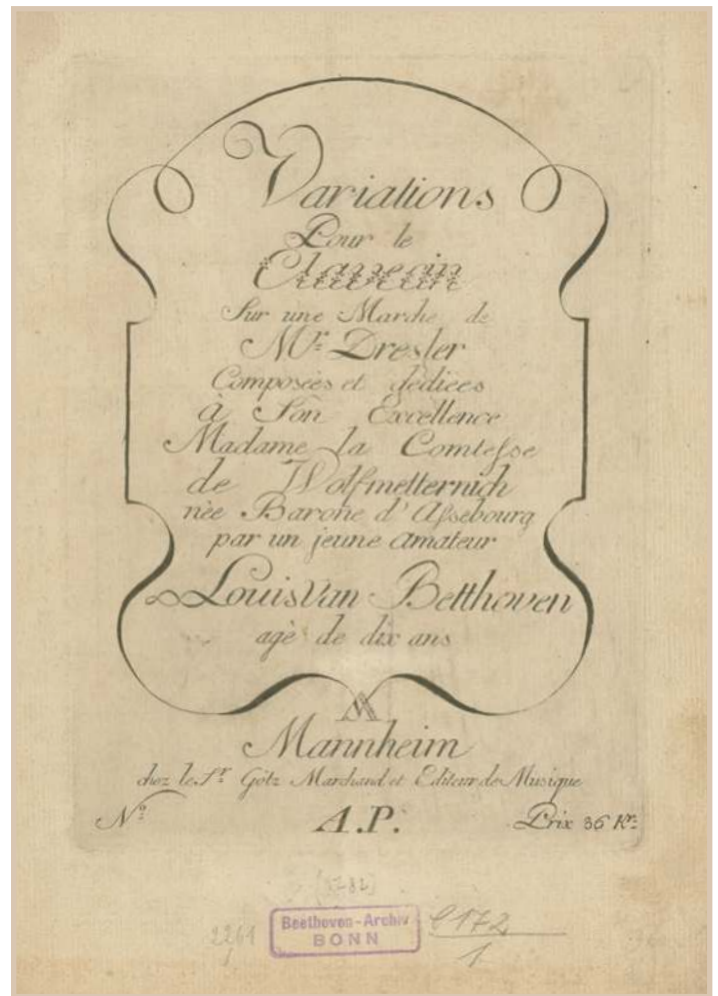 Variations
Pour le
Clavecin
Sur une Marche de
Mr. Dresler
Composées et dediées
à Son Excellence
Madame la Comtesse
de Wolfmetternich
née Barone d'Assebourg
par un jeune amateur
Louis Van Betthoven
agè de dix ans
Mannheim
chez le Sr. Götz Marchand et Editeur de Musique
No. A.P. Prix 36 Kr.
(1782)
2261
Beethoven-Archiv
BONN
C 172
1